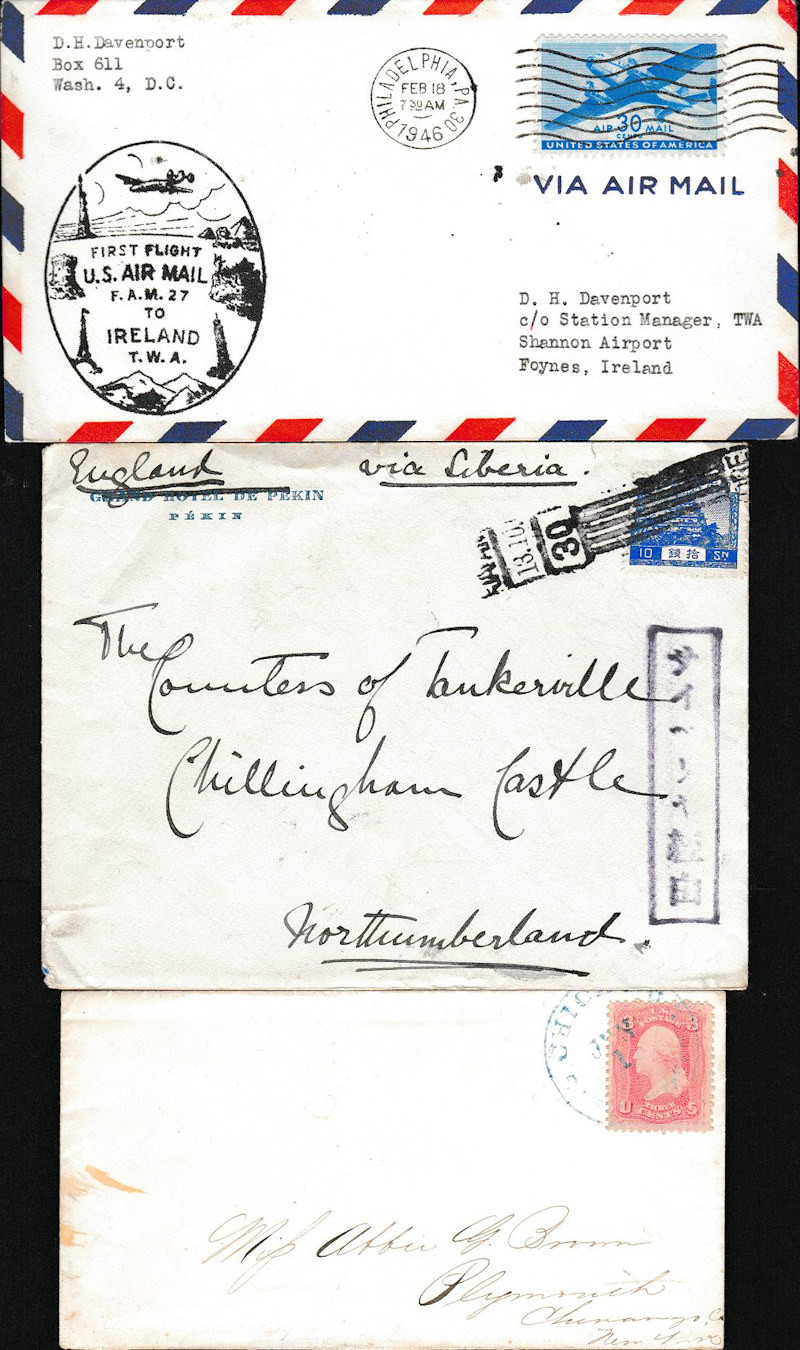 D.H.Davenport
Box 611
Wash. 4, D.C.
PHILADELPHIA, PA. 30
FEB 18
7 30 AM
1946
AIR 30 MAIL
CENTS
UNITED STATES OF AMERICA
VIA AIR MAIL
FIRST FLIGHT
U.S. AIR MAIL
F.A.M. 27
TO
IRELAND
T.W.A.
D. H. Davenport
c/o Station Manager, TWA
Shannon Airport
Foynes, Ireland
England via Siberia.
GRAND HOTEL DE PÉKIN
PÉKIN
30
10 錢拾 SN
The
Countess of Tankerville
Chillingham Castle
Northumberland.
U.S.
POSTAGE
3 3
THREE
U CENTS S
Miss Abbie G. Brown
Plymouth
Chenango Co
New York